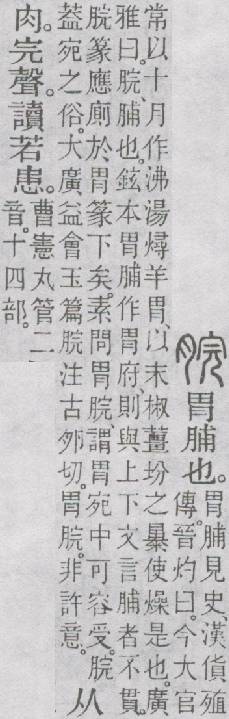 脘胃脯也。胃脯見史、漢貨殖
傳。晉灼曰。今大官
常以十月作沸湯燖羊胃、以末椒薑坋之㬥使燥是也。廣
雅曰。脘、脯也。鉉本胃脯作胃府、則與上下文言脯者不貫。
脘篆應廁於胃篆下矣。素問胃脘、謂胃宛中可容受。脘
葢宛之俗。大廣益會玉篇脘注古夘切。胃脘。非許意。
从
肉。完聲。讀若患。曹憲丸管二
音。十四部。